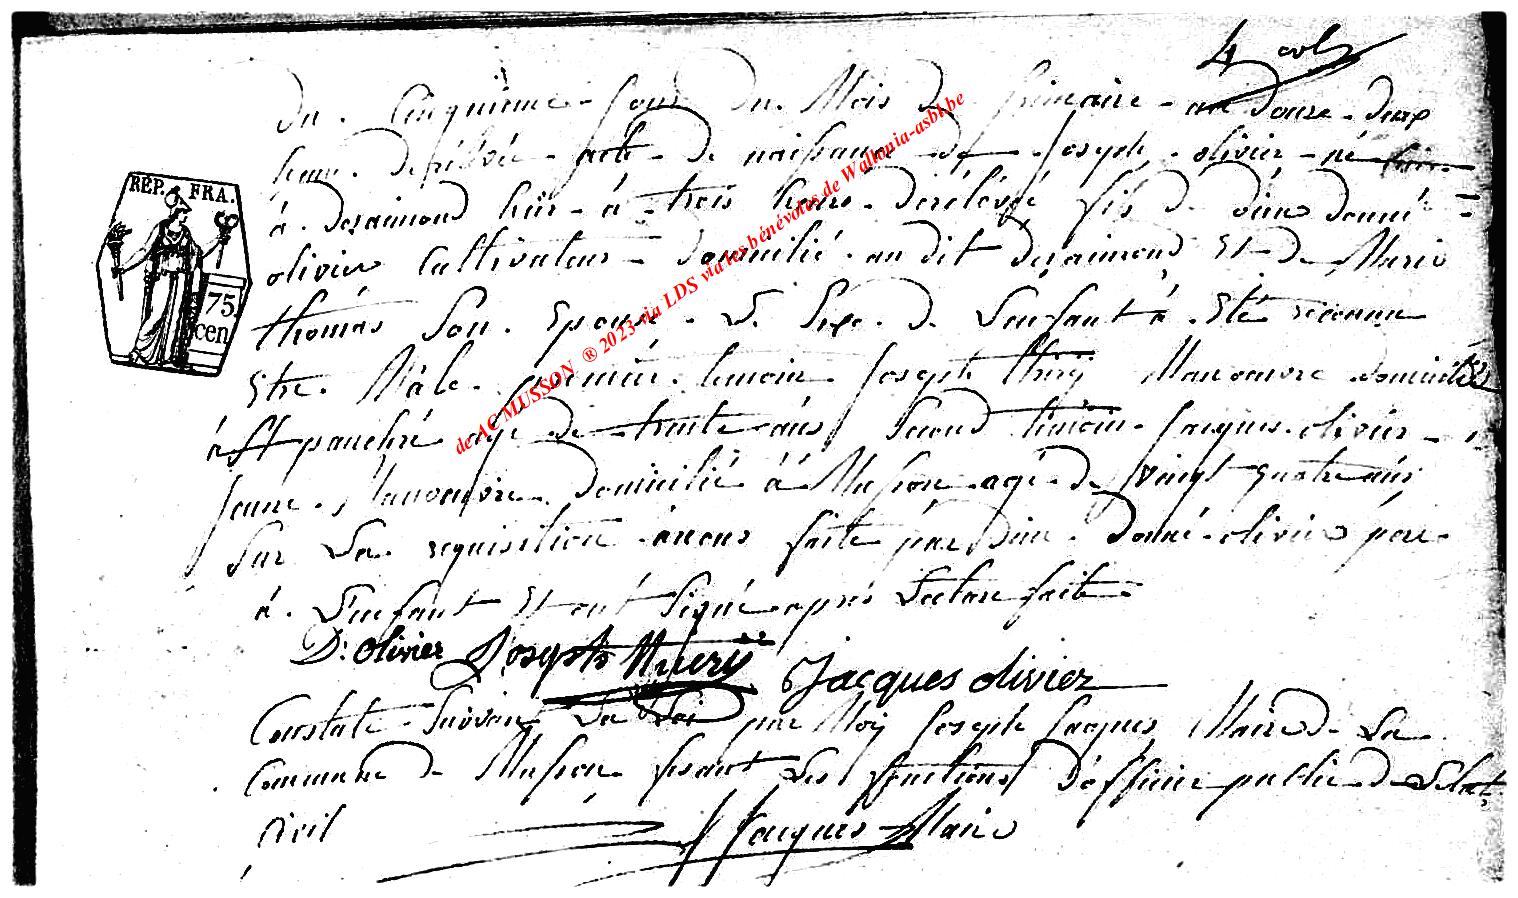 4 
Du. Cinquième jour Du Mois De frimaire an douze Deux
heure De rélévée acte De naissance De Joseph olivier né
à Desaimond hiër à trois heurs De rélévée fils De Dieu Donné
olivier Cultivateur Domicilié au dit Desaimond Et De Marie
thomás Son Epouse Le Sexe De L'enfant à Eté reconnu
Etre Mâle premiér témoin Joseph thiry Manoeuvre Domicilié
à St pancré agé de trente ans Second témoin Jacques olivier
jeune Manoeuvre Domicilié à Musson agé De Vingt quatre ans
Sur La requisition à nous faite par Dieu Donné olivier pere
à L'enfant Et ont Signé aprés Lecture faite
D: olivier Joseph thiery Jacques olivier
Constaté Suivant La Loi par Moy Joseph Jacques Maire De La
Commune De Musson fesant Les fonctions D'officier public De L'etat
Civil
J Jacques Maire
REP. FRA.
75
cen
de AC MUSSON ® 2023 via LDS via les bénévoles de Wallonia-asbl.be